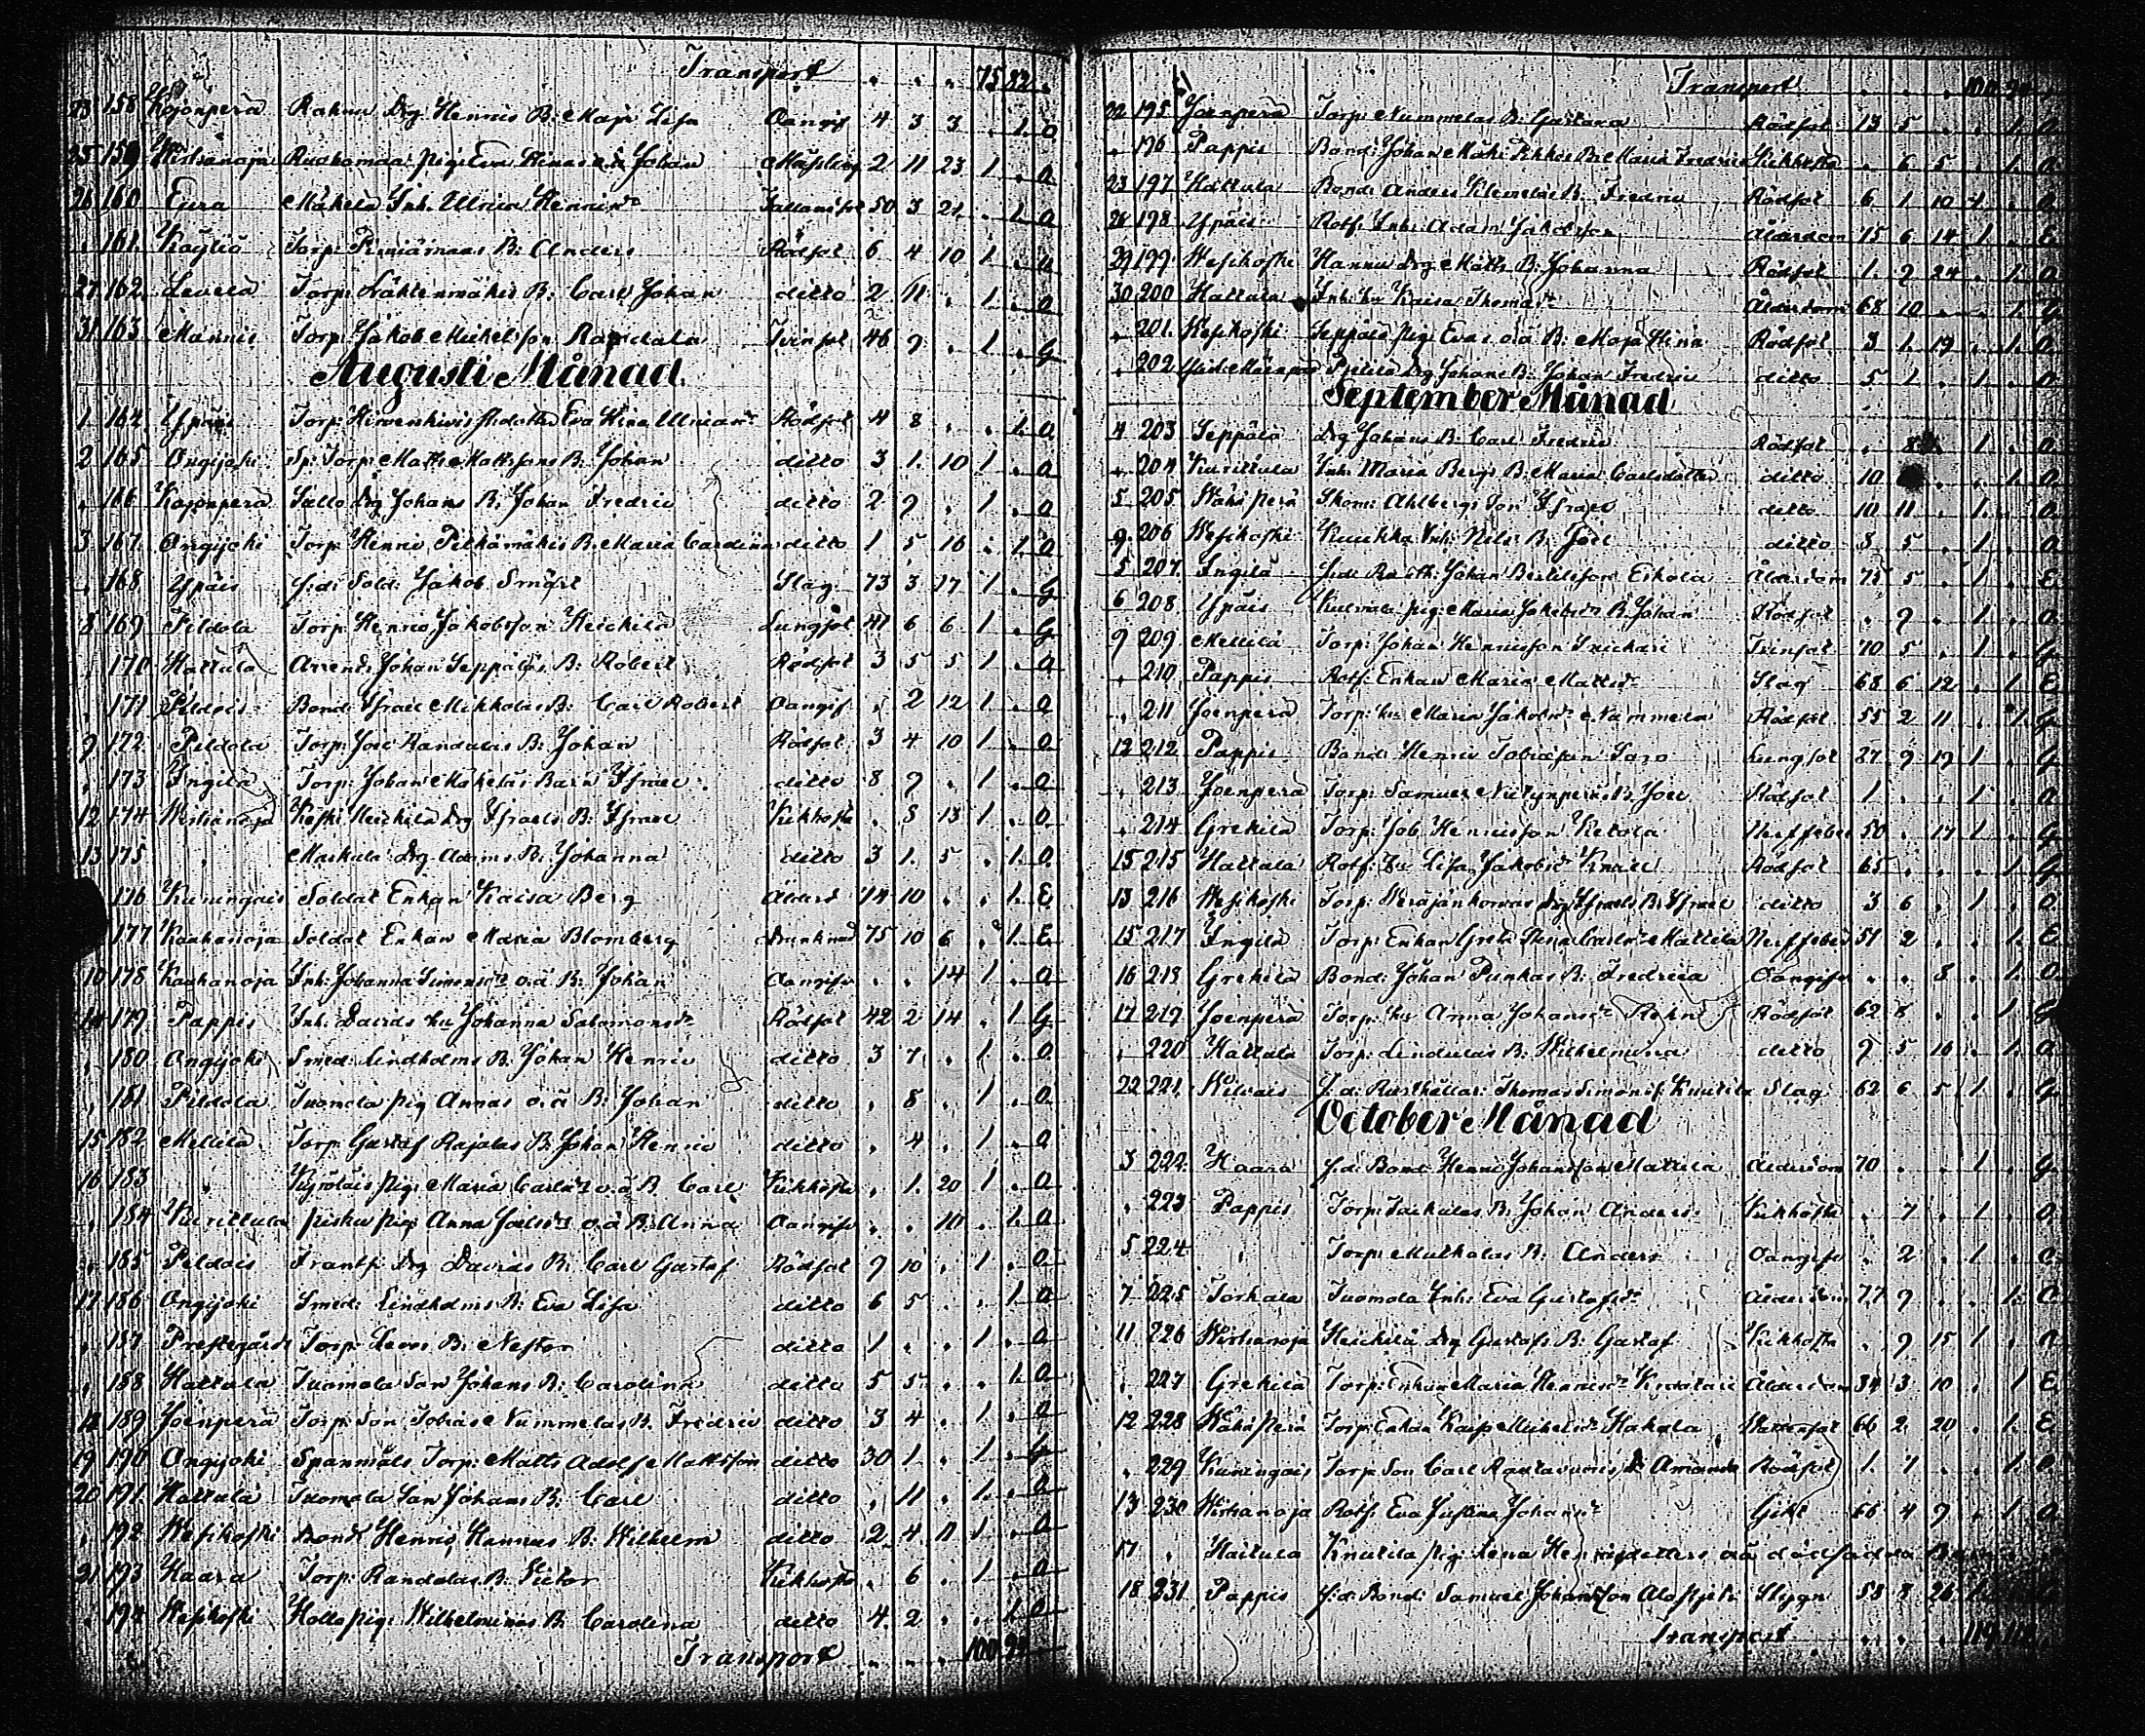 Transport . . . 75 82 .
23 158 Kojonperä Rahnu Drg Henrics B: Maja Lisa Oangif 4 3 3 . 1. O
25 159 Wirtsanoja Ruohomaa Pig: Eva Stinas o.ä Johan Mässling 2 11 23 1 . O
26 160 Eura Mäkelä Inh. Ulrica Henrics dr Fallandsot 50 3 21 . 1. O
. 161 Köyliö Torp: B: Anders Rödsot 6 4 10 1 . O
27 162 Levelä Torp: Lähtenmäkis B: Carl Johan ditto 2 11 . 1 . O
31 163 Mannis Torp: Jakob Michelsson Rapdala Tvinsot 46 9 . 1 . G
Augusti Månad
1 164 Ypäis Torp: Hirvenkivis Eva Stina Ulrica Rödsot 4 8 . . 1. O
2 165 Ongijoki Sp: Torp: Matts Mattssons B: Johan ditto 3 1. 10 1 . O
. 166 Kojonperä Sallo Drg Johans B: Johan Fredric ditto 2 9 . 1 . O
3 167 Ongijoki Torp: Henric Pitkämäkis B: Maria Carolina ditto 1 5 16 . 1 O
. 168 Ypäis f:d: Sold: Jakob Smört Slag 73 3 17 1 . G
8 169 Pildola Torp: Henric Jakobsson Heickilä Lungsot 41 6 6 1 . G
. 170 Hattula Arrend: Johan Seppäläs B: Robert Rödsot 3 5 5 1 . O
. 171 Peldois Bond: Israel Mikkolas B: Carl Robert Oangif . 2 12 1 . O
9 172 Pildola Torp: Joel Randalas B: Johan Rödsot 3 4 10 1 . O
. 173 Ingilä Torp: Johan Mäkeläs Barn Israel ditto 8 9 . 1 . O
12 174 Wirtsanoja Koski Heickilä Drg Israels B: Israel Kikhosta . 5 13 1 . O
13 175 . Markula Drg Adams B: Johanna ditto 3 1. 5 . 1. O
. 176 Kuningais Soldat Enkan Kaisa Berg Ålderd 74 10 . . 1. E
. 177 Kauhanoja Soldat Enkan Maria Blomberg Drunknad 75 10 6 . 1. E
10 178 Kauhanoja Inh: Johanna Simons dr o.ä B: Johan Oangifv . . 14 1 . O
14 179 Pappis Inh. Davids hu Johanna Salomons dr Rödsot 42 2 14 . 1 G
. 180 Ongijoki Smed: Lindholms B: Johan Henric ditto 3 7 . 1 . O
. 181 Pildola Tuomola Pig Annas o.ä B: Johan ditto . 8 . 1 . O
15 182 Mellilä Torp: Gustaf Rajalas B: Johan Henric ditto . 4 . 1 . O
16 183 . Kyröläis Pig: Maria Carls dr o.ä B. Carl Kikhosta . 1. 20 1 . O
. 184 Kurittula Pisku Pig: Anna Joels dr o.ä B: Anna Oangifv . . 10 . 1. O
. 185 Peldois Frantsi Drg Davids B: Carl Gustaf Rödsot 9 10 . 1 . O
17 186 Ongijoki Smed: Lindholms B: Eva Lisa ditto 6 5 . . 1 O
. 187 Prestegård Torp: Levos B: Nestor ditto 1 . . 1 . O
. 188 Hattula Tuomola Son Johans B: Carolina ditto 5 5 . . 1. O
18 189 Joenperä Torp: Son Tobias Nummelas B. Fredric ditto 3 4 . 1 . O
19 190 Ongijoki Spanmåls Torp: Matts Adolf Mattsson ditto 30 1. . 1 . G
20 191 Hattula Tuomola Son Johans B: Carl ditto . 11 . 1. . O
. 192 Wesikoski Bond: Henric Hannus B: Wilhelm ditto 2 4 11 1 . O
21 193 Haara Torp: Randalas B: Victor Kikhosta . 6 . 1 . O
. 194 Wesikoski Hollo Pig: Wilhelminas B: Carolina ditto 4. 2 . . 1. O
Transport . . . 100 94
Transport . . . 100 94 .
22 195 Joenperä Torp: Nummelas B: Gustava Rödsot 13 5 . . 1. O
. 196 Pappis Bond: Johan Mäki Pekkas B: Maria Fredrica Kikhosta . 6 5 . 1. O
23 197 Hattula Bond: Anders Klemelas B: Fredric Rödsot 6 1. 10 1 . O
28 198 Ypäis Rotf: Inh: Adam Jakobsson Ålderdom 75 6 14 1 . E
29 199 Wesikoski Hannu Drg Matts B: Johanna Rödsot 1. 9 24 . 1. O
30 200 Hattula Inh: hu Kaisa Thomas dr Ålderdom 68 10 . . 1. G
. 201 Wesikoski Seppäis Pig: Evas o.ä B: Maja Stina Rödsot 3 1. 19 . 1. O
. 202 Pijlilä Drg Johans B: Johan Fredric ditto 5 1 . 1 . O
September Månad
4 203 Seppälä Drg Johans B: Carl Fredric Rödsot . 8 . 1 . O
. 204 Kurittula Inh: Maria Bergs B: Maria Carlsdotter ditto 10 . . 1. O
5 205 Wähäperä Skom: Ahlbergs Son Israel ditto 10 11 . 1. . O
9 206 Wesikoski Kuukka Inh: Nils B: Joel ditto 3 5 . 1 . O
5 207 Ingilä f:d: Rusth: Johan Bertilsson Eskola Ålderdom 75 5 . 1 . E
6 208 Ypäis Pig: Maria Jakobs dr B: Johan Rödsot . 9 . 1 . O
9 209 Mellilä Torp: Johan Henricsson Tuickari Tvinsot 70 5 . 1 . G
. 210 Pappis Rotf: Enkan Maria Matts dr Slag 68 6 12 . 1. E
. 211 Joenperä Torp: hu Maria Jakobs dr Nummela Rödsot 55 2 11 . 1. G
12 212 Pappis Bond: Henric Tobiasson Saro Lungsot 27 9 19 1 . G
. 213 Joenperä Torp: Samuel B: Joel Rödsot 1 . . 1 . O
. 214 Grekilä Torp: Job Henricsson Ketola Nerffeber 50 . 17 1 . G
15 215 Hattula Rotf: hu Lisa Jakobs dr Knall Rödsot 65 . . . 1 G
13 216 Wesikoski Torp: Weräjänkorvas Drg Israels B: Israel ditto 3 6 . 1 . O
15 217 Ingilä Torp: Enkan Greta Stina Carls dr Mattila Nerffeber 51 2 . . 1. E
16 218 Grekilä Bond: Johan Punkas B: Fredrica Oangifv . . 3 . 1. O
17 219 Joenperä Torp: hu Anna Johans dr Rödsot 62 8 . . 1 G
. 220 Hattula Torp: Lindulas B: Wilhelmina ditto 9 5 16 . 1. O
22 221 Kilvais f:d: Rusthållar: Thomas Simonss: Knutila Slag 62 6 5 1 . G
October Månad
3 222 Haara f:d: Bond: Henric Johansson Mattila Ålderdom 70 . . 1 . G
. 223 Pappis Torp: B: Johan Anders Kikhosta . 7 . 1 . O
5 224 . Torp: Mulkalas B: Anders Oangifv . 2 . 1 . O
7 225 Torkala Tuomola Inh: Eva Gustafs dr Ålderdom 77 9 . . 1. O
11 226 Wirtsanoja Heickilä Drg Gustafs B: Gustaf Kikhosta . 9 15 1 . O
. 227 Grekilä Torp: Enkan Maria Henrics dr Ålderdom 84 3 10 . 1 E
12 228 Wähäperä Torp: Enkan Kaisa Michels dr Hakala Wattensot 66 2 20 . 1. E
. 229 Kuningais Torp: Son Carl Rautavuoris B: Amanda Rödsot 1. 7 . . 1 O
13 230 Wirtsanoja Rotf: Eva Justina Johans dr Gikt 66 4 9 . 1. O
17 . Hattula Knutila Pig: Lena Henricsdotters oä dödfödda
18 231 Pappis f:d: Bond: Samuel Johansson Alastjeti Stygn 58 8 26
Transport . . . 119 112